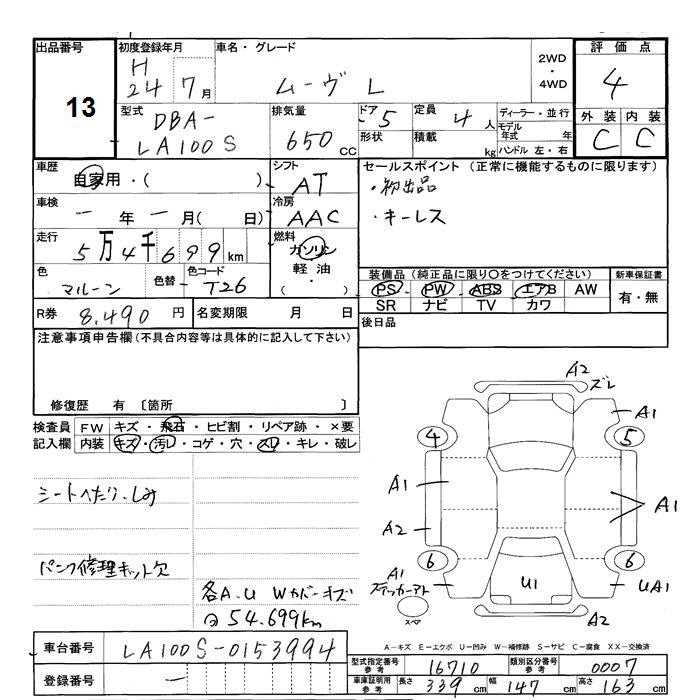 出品番号
13
初度登録年月
H
24 7月
車名・グレード
ムーヴ L
2WD
・
4WD
評価点
4
外装 内装
C C
型式
DBA-
LA100S
排気量
650 cc
ドア
5
形状
定員
4 人
積載
kg
ディーラー・並行
モデル
年式 年
ハンドル 左・右
車歴
自家用・( )
シフト
AT
セールスポイント (正常に機能するものに限ります)
・初出品
・キーレス
車検
ー 年 ー 月( 日)
冷房
AAC
走行
5万4千699km
燃料
ガソリン
軽油
( ・ )
色
マルーン
色替
色コード
T26
装備品(純正品に限り〇をつけてください)
PS PW ABS エアB AW
SR ナビ TV カワ
新車保証書
有・無
R券 8,490円
名変期限 月 日
後日品
注意事項申告欄(不具合内容等は具体的に記入して下さい)
修復歴 有 〔箇所 〕
検査員
記入欄
FW キズ・飛石・ヒビ割・リペア跡・×要
内装 キズ・汚レ・コゲ・穴・スレ・キレ・破レ
シートへたり、しみ
パンク修理キット欠
各A、U Wカバーキズ
54.699km
A2
ズレ
A1
4 5
A1
A1
A2
6 6
A1
ステッカーアト
U1
UA1
スペア
A2
A−キズ E−エクボ U−凹み W−補修跡 S−サビ C−腐食 XX−交換済
車台番号 LA100S-0153994
登録番号 ー
型式指定番号
参考
16710
類別区分番号
参考
0007
車庫証明用
参考
長さ 339cm 幅 147cm 高さ 163cm